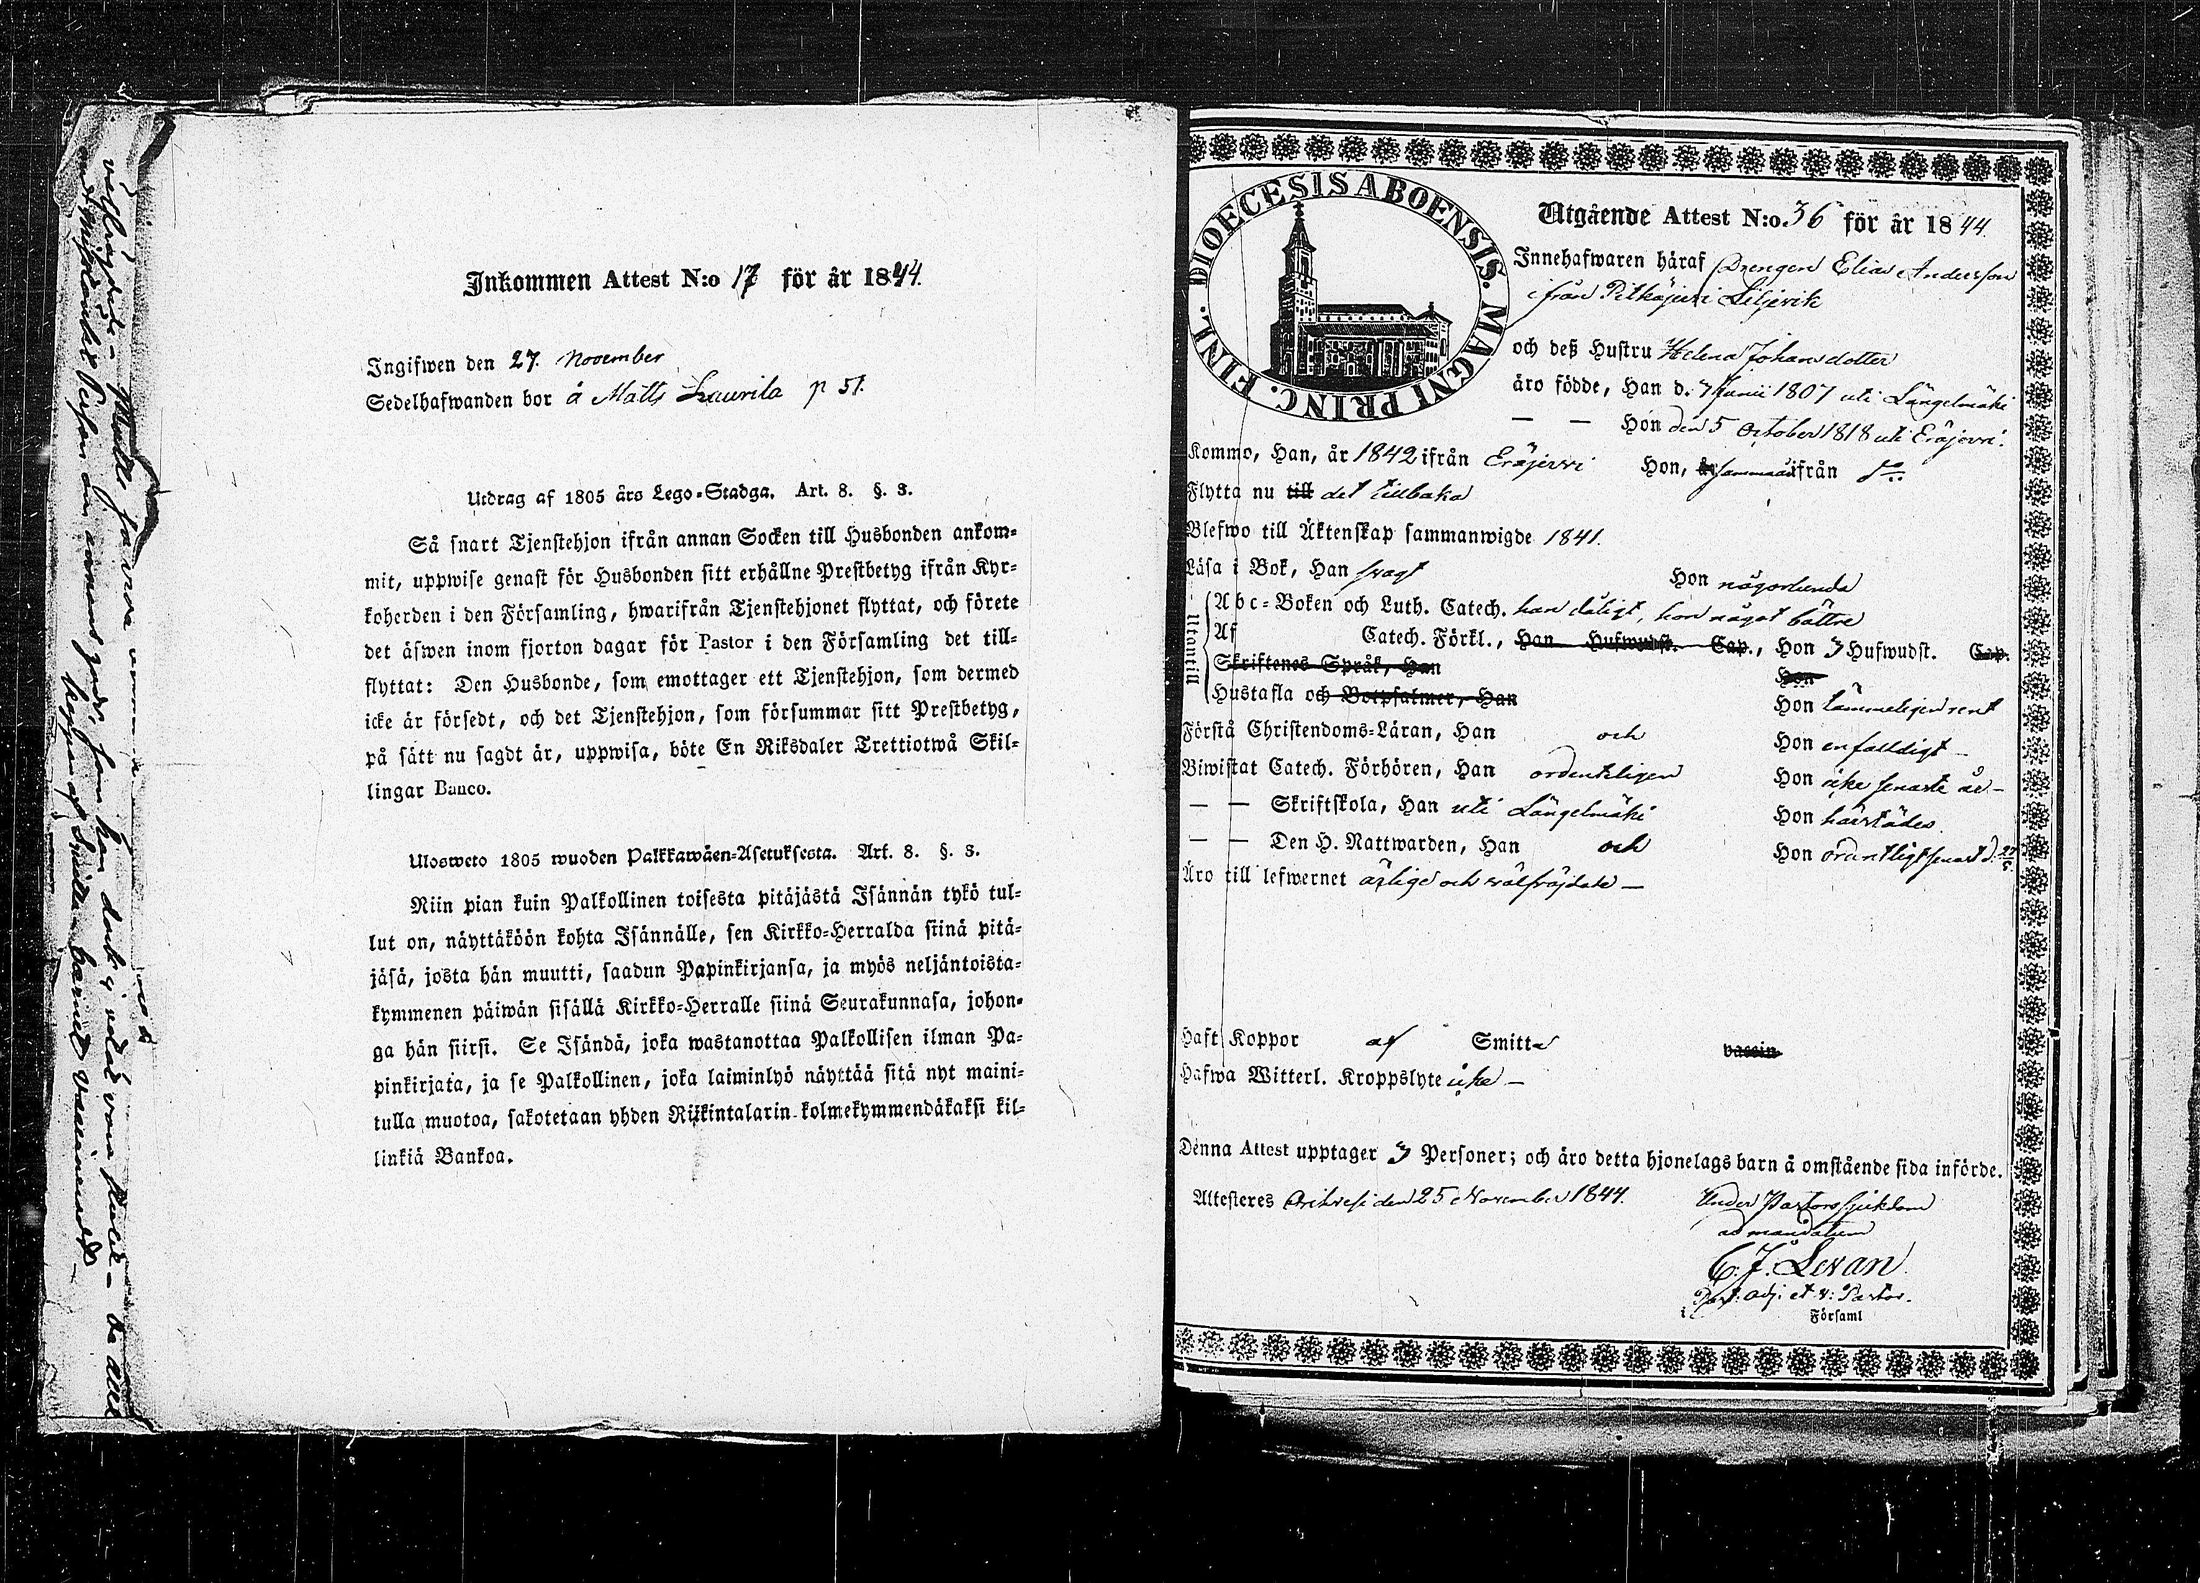 Inkommen Attest N:o 17 för år 1844.
Ingifwen den 27. November
Sedelhafwanden bor å Matts Laurila p 51.
Utdrag af 1805 års Lego-Stadga. Art. 8. §. 3.
Så snart Tjenstehjon ifrån annan Socken till Husbonden ankom-
mit, uppwise genast för Husbonden sitt erhållne Prestbetyg ifrån Kyr-
koherden i den Församling, hwarifrån Tjenstehjonet flyttat, och förete
det äfwen inom fjorton dagar för Pastor i den Församling det till-
flyttat: Den Husbonde, som emottager ett Tjenstehjon, som dermed
icke är försedt, och det Tjenstehjon, som försummar sitt Prestbetyg,
på sätt nu sagdt är, uppwisa, böte En Riksdaler Trettiotwå Skil-
lingar Banco.
Ulosweto 1805 wuoden Palkkawäen-Asetuksesta. Art. 8. §. 3.
Niin pian kuin Palkollinen toisesta pitäjästä Isännän tykö tul-
lut on, näyttäköön kohta Isännälle, sen Kirkko-Herralda siinä pitä-
jäsä, josta hän muutti, saadun Papinkirjansa, ja myös neljäntoista-
kymmenen päiwän sisällä Kirkko-Herralle siinä Seurakunnasa, johon-
ga hän siirsi. Se Isändä, joka wastanottaa Palkollisen ilman Pa-
pinkirjata, ja se Palkollinen, joka laiminlyö näyttää sitä nyt maini-
tulla muotoa, sakotetaan yhden Riikintalarin kolmekymmendäkaksi kil-
linkiä Bankoa.
DIOECESIS ABOENSIS. MAGNI PRINC. FINL.
Utgående Attest N:o 36 för år 1844.
Innehafwaren häraf Drengen Elias Andersson
ifrån Pitkäjerwi Liljevik
och deß Hustru Helena Johansdotter
äro födde, Han d. 7 Junii 1807 uti Längelmäki
— — Hon den 5 October 1818 uti Eräjerwi.
Kommo, Han, år 1842 ifrån Eräjerwi Hon, år samma ifrån do
Flytta nu till det tillbaka
Blefwo till Äktenskap sammanwigde 1841.
Läsa i Bok, Han svagt Hon någorlunda
Utantill
Abc-Boken och Luth. Catech. han dåligt, hon något bättre
Af Catech. Förkl., Han Hufwudst. Cap., Hon 3 Hufwudst. Cap.
Skriftenes Språk, Han Hon
Hustafla och Botpsalmer, Han Hon tämmeligen rent
Förstå Christendoms-Läran, Han och Hon enfaldigt —
Biwistat Catech. Förhören, Han ordentligen Hon icke senaste år —
— — Skriftskola, Han uti Längelmäki Hon härstädes.
— — Den H. Nattwarden, Han och Hon ordentligt senast d.
Äro till lefwernet ärlige och välfräjdade —
Haft Koppor af Smitta vaccin.
Hafwa Witterl. Kroppslyte icke —
Denna Attest upptager 3 Personer; och äro detta hjonelags barn å omstående sida införde.
Attesteres Orihvesi den 25 November 1844. Under Pastors sjukdom
ad mandatum
C. J. Levan
Past: adj: et v: Pastor.
i Församl